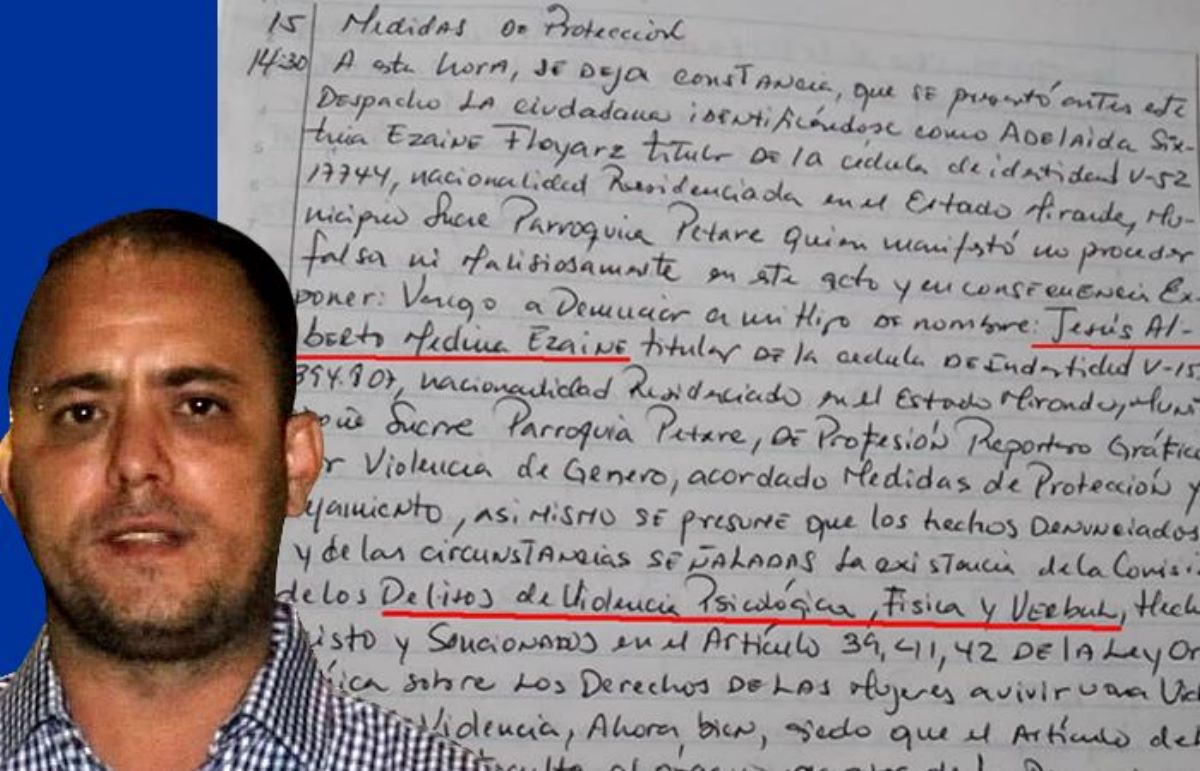 15 Medidas de Protección
14:30 A esta hora, se deja constancia, que se presentó antes este
Despacho la ciudadana identificándose como Adelaida Six-
tina Ezaine Floyarz titular de la cédula de identidad V-52
17744, nacionalidad Residenciada en el Estado Miranda, Mu-
nicipio Sucre Parroquia Petare quien manifestó no proceder
falsa ni Malisiosamente en este acto y en consecuencia Ex
poner: Vengo a Denunciar a un Hijo de nombre: Jesús Al-
berto Medina Ezaine titular de la cedula de Indentidad V-15
394.807, nacionalidad Residenciado en el Estado Miranda, Muni
Sucre Parroquia Petare, de Profesión Reportero Gráfico
Violencia de Genero, acordado Medidas de Protección y
, asi mismo se presume que los hechos denunciados
y de las circunstancias señaladas la existencia de la Comisi
de los Delitos de Violencia Psicológica, Fisica y Verbal, Hech
isto y Sancionados en el Artículo 39, 41, 42 de la Ley Or
ica sobre los Derechos de las Mujeres a vivir una Vid
Violencia, Ahora bien, siedo que el Artículo del